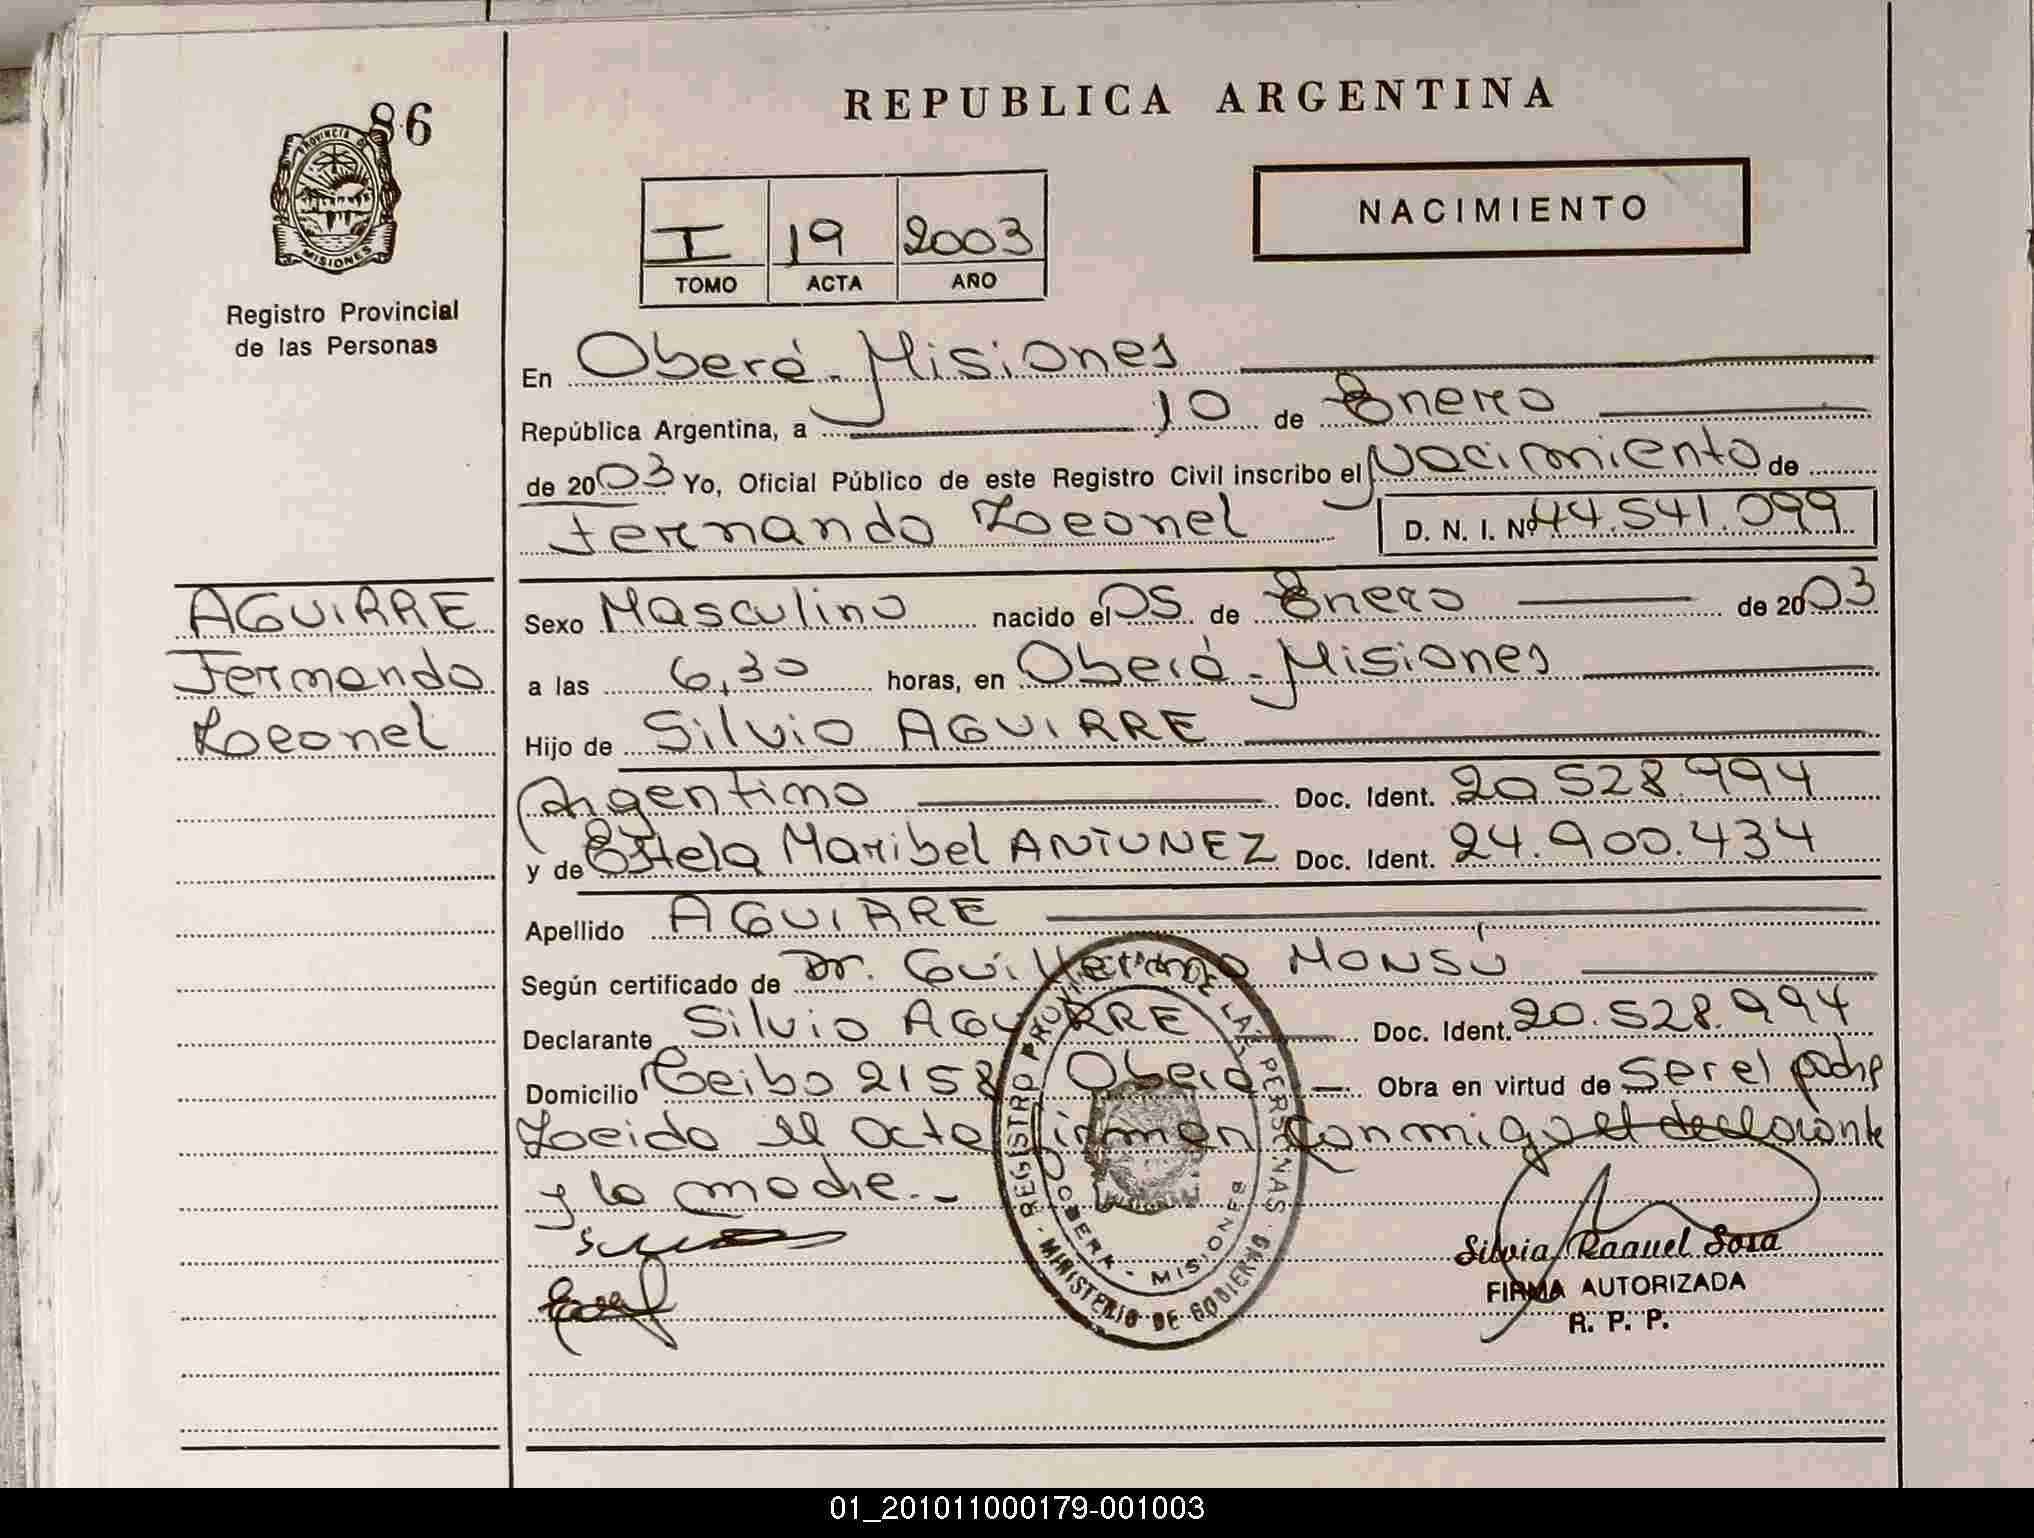 86
PROVINCIA DE
MISIONES
Registro Provincial
de las Personas
REPUBLICA ARGENTINA
I 19 2003
TOMO ACTA AÑO
NACIMIENTO
En Oberá - Misiones
República Argentina, a 10 de Enero
de 2003 Yo, Oficial Público de este Registro Civil inscribo el Nacimiento de
Fernando Leonel D. N. I. Nº 44.541.099
AGUIRRE
Fernando
Leonel
Sexo Masculino nacido el 05 de Enero de 2003
a las 6,30 horas, en Oberá - Misiones
Hijo de Silvio AGUIRRE
Argentino Doc. Ident. 20.528.994
y de Estela Maribel ANTUNEZ Doc. Ident. 24.900.434
Apellido AGUIRRE
Según certificado de Dr. Guillermo MONSÚ
Declarante Silvio AGUIRRE Doc. Ident. 20.528.994
Domicilio Ceibo 2158 Oberá Obra en virtud de ser el padre
Leida el acta firman conmigo el declarante
y la madre.-
REGISTRO PROVINCIAL DE LAS PERSONAS
MINISTERIO DE GOBIERNO
MISIONES
Silvia Raquel Sosa
FIRMA AUTORIZADA
R. P. P.
01_201011000179-001003